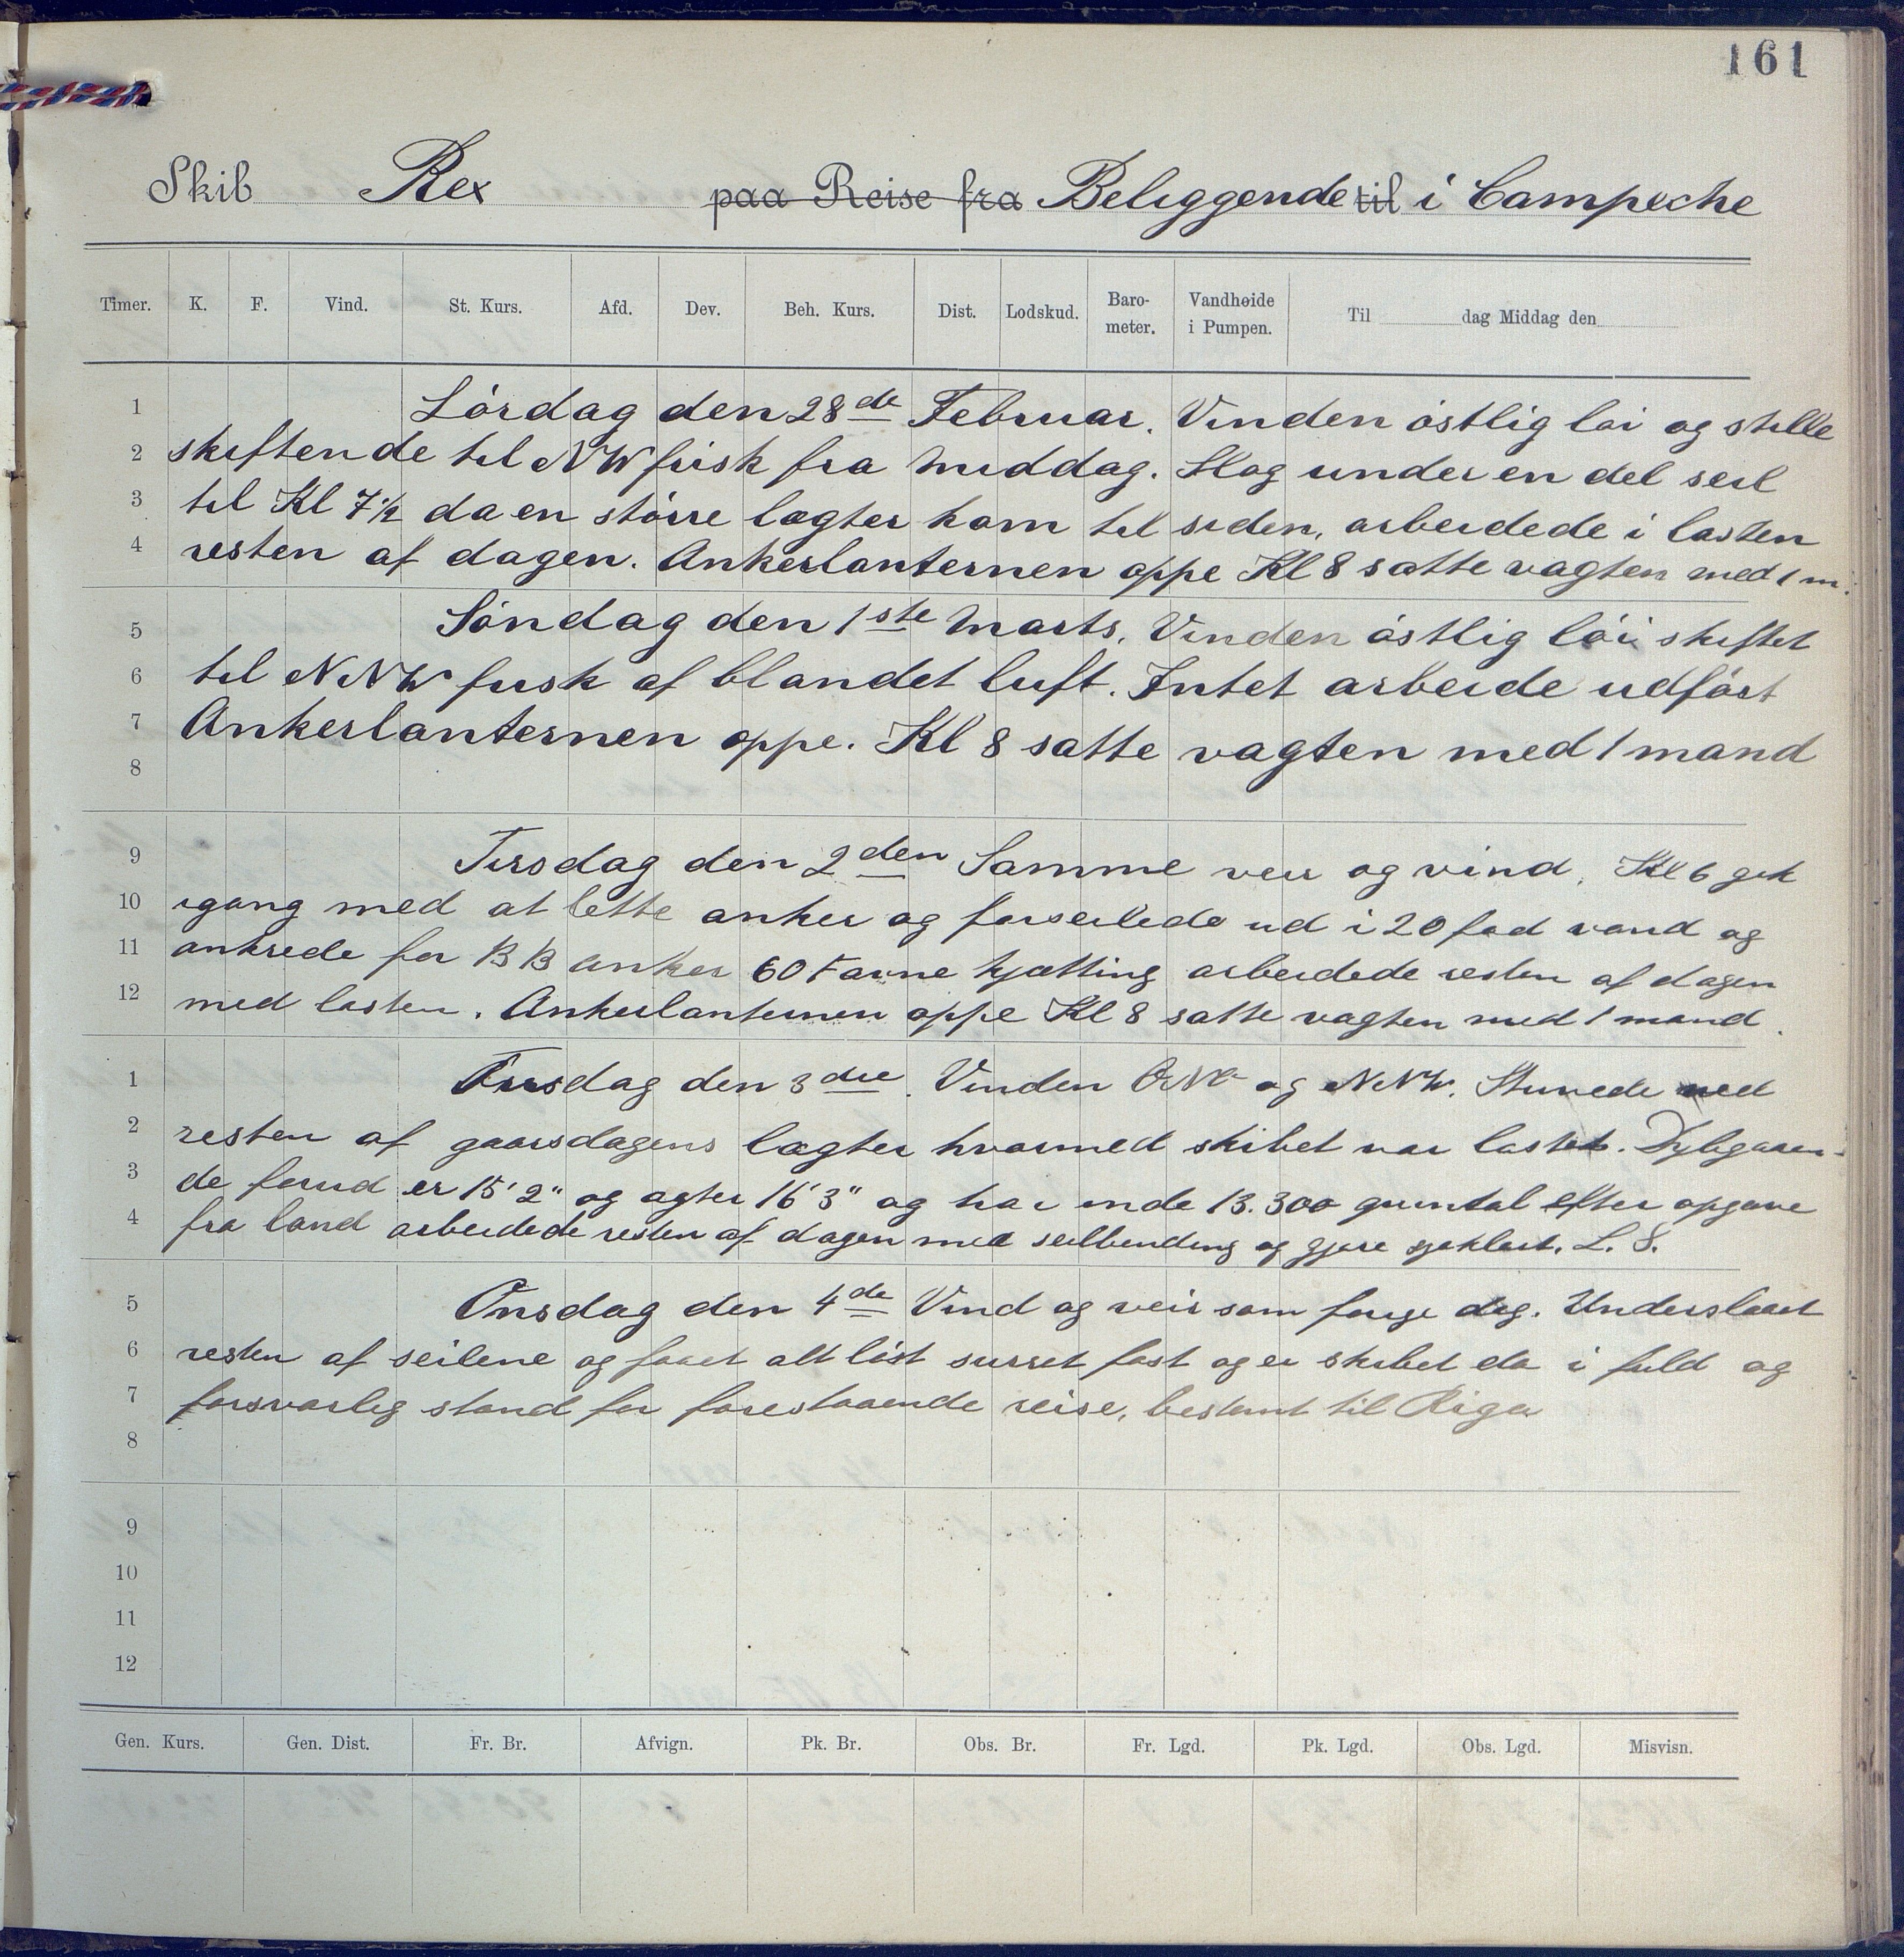 161
Skib Rex paa Reise fra Beliggende til i Campeche
Timer. K. F. Vind. St. Kurs. Afd. Dev. Beh. Kurs. Dist. Lodskud. Baro-meter. Vandhøide i Pumpen. Til dag Middag den
1 Lórdag den 28de Februar. Vinden óstlig lói og stille
2 skiftende til NW frisk fra Middag. Slog under en del seil
3 til Kl 7½ da en stórre lægter kom til siden, arbeidede i lasten
4 resten af dagen. Ankerlanternen oppe Kl 8 satte vagten med 1 m.
5 Sóndag den 1ste Marts. Vinden óstlig lói skiftet
6 til NNW frisk af blandet luft. Intet arbeide udfórt
7 Ankerlanternen oppe. Kl 8 satte vagten med 1 mand
8
9 Tirsdag den 2den Samme veir og vind. Kl 6 gik
10 igang med at lette anker og forseilede ud i 20 fod vand og
11 ankrede for BB anker 60 Favne kjætting arbeidede resten af dagen
12 med lasten. Ankerlanternen oppe Kl 8 satte vagten med 1 mand.
1 Tirsdag den 3die. Vinden ONO og NNW. Stuvede ned
2 resten af gaarsdagens lægter hvormed skibet var lastet. Dybgaaen-
3 de forud er 15' 2" og agter 16' 3" og har inde 13.300 quintal efter opgave
4 fra land arbeidede resten af dagen med seilbending og gjøre sjøklart. L. S.
5 Onsdag den 4de Vind og veir som forige dag. Underslaaet
6 resten af seilene og faaet alt lóst surret fast og er skibet da i fuld og
7 forsvarlig stand for forestaaende reise, bestemt til Riga
8
9
10
11
12
Gen. Kurs. Gen. Dist. Fr. Br. Afvign. Pk. Br. Obs. Br. Fr. Lgd. Pk. Lgd. Obs. Lgd. Misvisn.